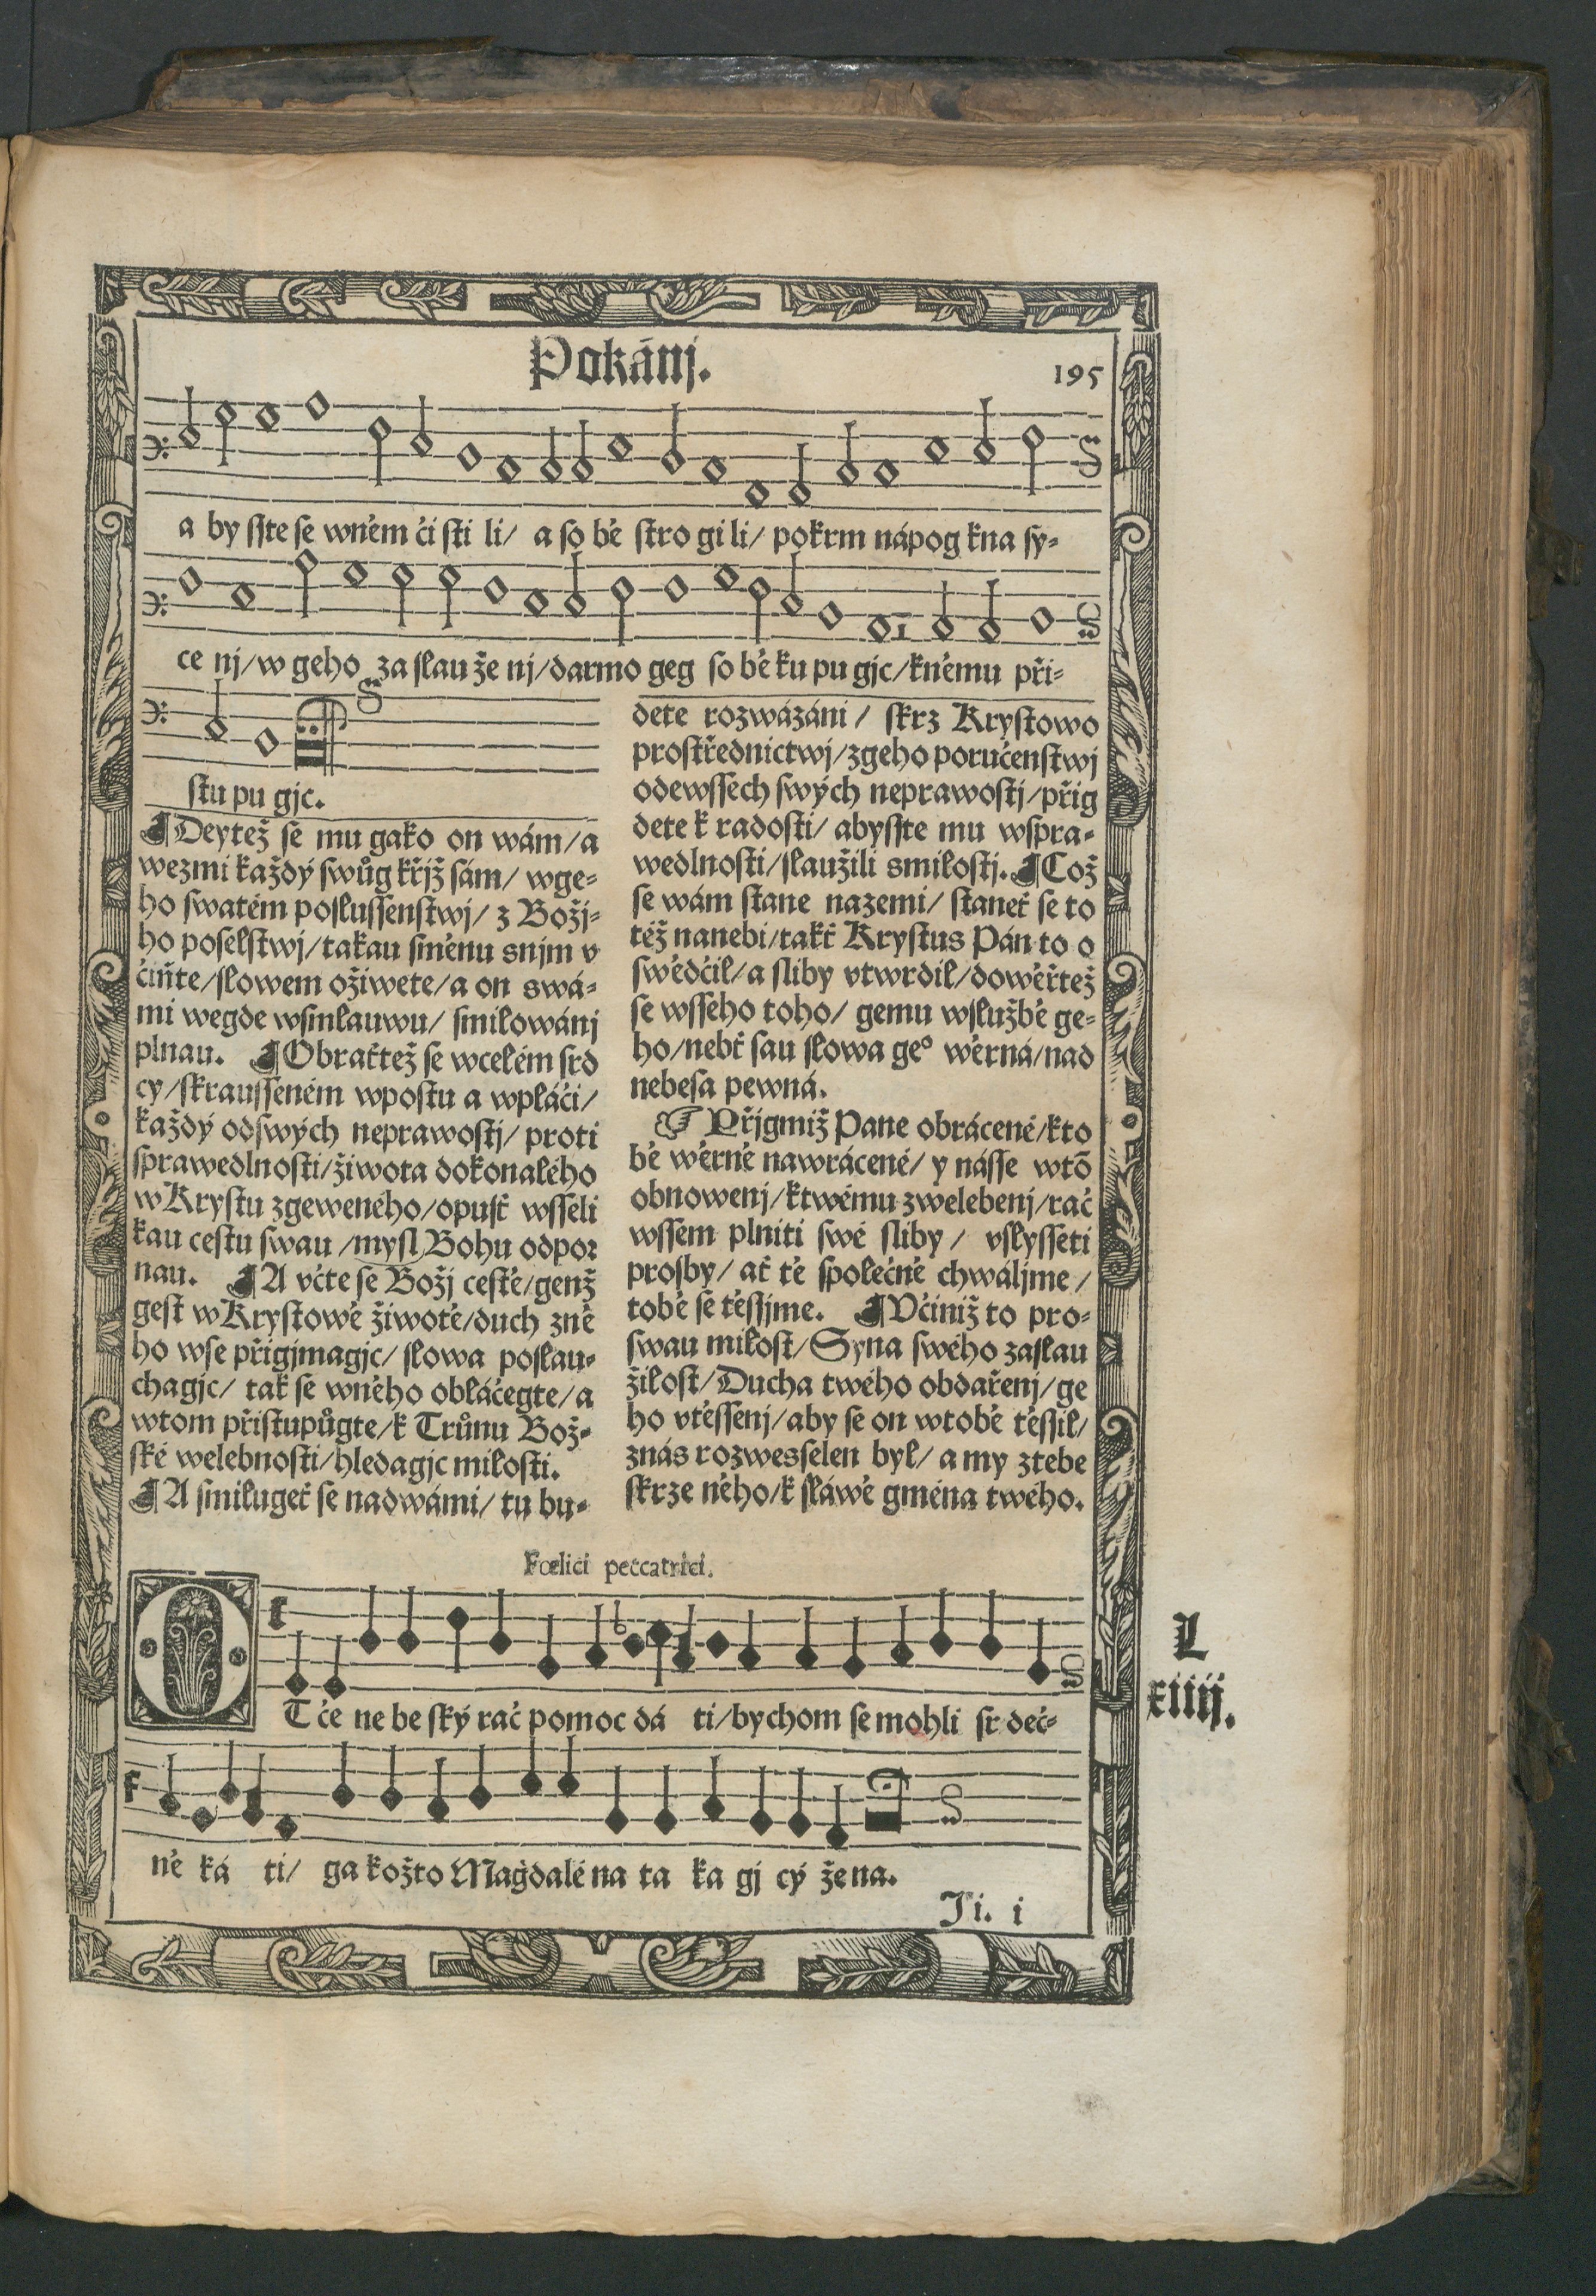 Pokánj.
195
a by sste se wněm či sti li/ a so bě stro gi li/ pokrm nápog kna sy-
ce nj/ w geho za slau že nj/ darmo geg so bě ku pu gjc/ kněmu při-
stu pu gjc.
¶ Deytež se mu gako on wám/ a
wezmi každý swůg křjž sám/ wge-
ho swatém poslussenstwj/ z Božj-
ho poselstwj/ takau směnu snjm v
čiňte/ slowem ožiwete/ a on swá-
mi wegde wsmlauwu/ smilowánj
plnau. ¶ Obraťtež se wcelém srd
cy/ skrausseném wpostu a wpláči/
každý odswých neprawostj/ proti
sprawedlnosti/ žiwota dokonalého
w Krystu zgeweného/ opusť wsseli
kau cestu swau/ mysl Bohu odpor
nau. ¶ A včte se Božj cestě/ genž
gest w Krystowě žiwotě/ duch zně
ho wse přigjmagjc/ slowa poslau-
chagjc/ tak se wněho obláčegte/ a
wtom přistupůgte/ k Trůnu Bož-
ské welebnosti/ hledagjc milosti.
¶ A smilugeť se nadwámi/ tu bu-
dete rozwázáni/ skrz Krystowo
prostřednictwj/ zgeho poručenstwj
odewssech swých neprawostj/ přig
dete k radosti/ abysste mu wspra-
wedlnosti/ slaužili smilostj. ¶ Což
se wám stane nazemi/ staneť se to
též nanebi/ takť Krystus Pán to o
swědčil/ a sliby vtwrdil/ dowěřtež
se wsseho toho/ gemu wslužbě ge-
ho/ nebť sau slowa geº wěrná/ nad
nebesa pewná.
☞ Přigmiž Pane obrácené/ kto
bě wěrně nawrácené/ y násse wtō
obnowenj/ ktwému zwelebenj/ rač
wssem plniti swé sliby/ vslysseti
prosby/ ať tě společně chwáljme/
tobě se těssjme. ¶ Včiniž to pro-
swau milost/ Syna swého zaslau
žilost/ Ducha twého obdařenj/ ge
ho vtěssenj/ aby se on wtobě těssil/
znás rozwesselen byl/ a my ztebe
skrze něho/ k sláwě gména twého.
Fœlici peccatrici.
L
xiiij.
OTče ne be ský rač pomoc dá ti/ bychom se mohli sr deč-
ně ká ti/ ga kožto Magdalé na ta ka gj cý že na.
Ji. i